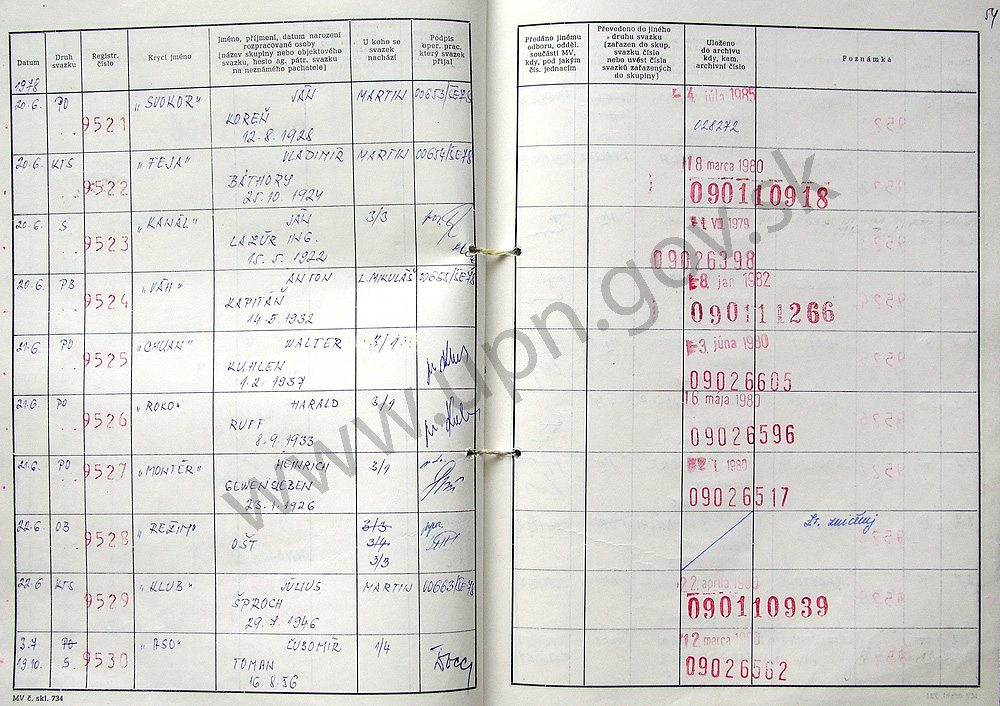 54
Datum
Druh svazku
Registr. číslo
Krycí jméno
Jméno, příjmení, datum narození rozpracované osoby (název skupiny nebo objektového svazku, heslo ag. pátr. svazku na neznámého pachatele)
U koho se svazek nachází
Podpis oper. prac. který svazek přijal
Předáno jinému odboru, odděl. součásti MV, kdy, pod jakým čís. jednacím
Převedeno do jiného druhu svazku (zařazen do skup. svazku číslo nebo uvést čísla svazků zařazených do skupiny)
Uloženo do archivu kdy, kam, archivní číslo
Poznámka
1978
20.6. PO 9521 „SVOKOR" JÁN MARTIN 00653/SE-78 4. júla 1985
KOREŇ 028272
12.8.1928
20.6. KTS 9522 „TEJA" VLADIMÍR MARTIN 00654/SE-78 18 marca 1980
BÁTHORY 090110918
25.10.1924
20.6. S 9523 „KANÁL" JÁN 3/3 1 VIII. 1979
LAZÚR ING. 09026398
15.5.1922
20.6. PB 9524 „VÁH" ANTON L.MIKULÁŠ 00655/SE-78 8. jan 1982
KAPITÁŇ 090111266
14.5.1932
21.6. PO 9525 „CHUAN" WALTER 3/1 3. júna 1980
KUHLEN 09026605
1.2.1937
21.6. PO 9526 „ROKO" HARALD 3/1 16 mája 1980
RUFF 09026596
8.9.1933
21.6. PO 9527 „MONTÉR" HEINRICH 3/1 1980
GEWENSLEBEN 09026517
23.1.1926
22.6 OB 9528 „REŽIM" 3/3
OŠT 3/4
3/3
22.6 KTS 9529 „KLUB" JÚLIUS MARTIN 00663/SE-78 22 apríla 1980
ŠPROCH 090110939
29.7.1946
3.7 PO 9530 „ASO" ĽUBOMÍR 1/4 12 marca 1980
19.10. S TOMAN 09026562
16.8.56
MV č. skl. 734
www.upn.gov.sk